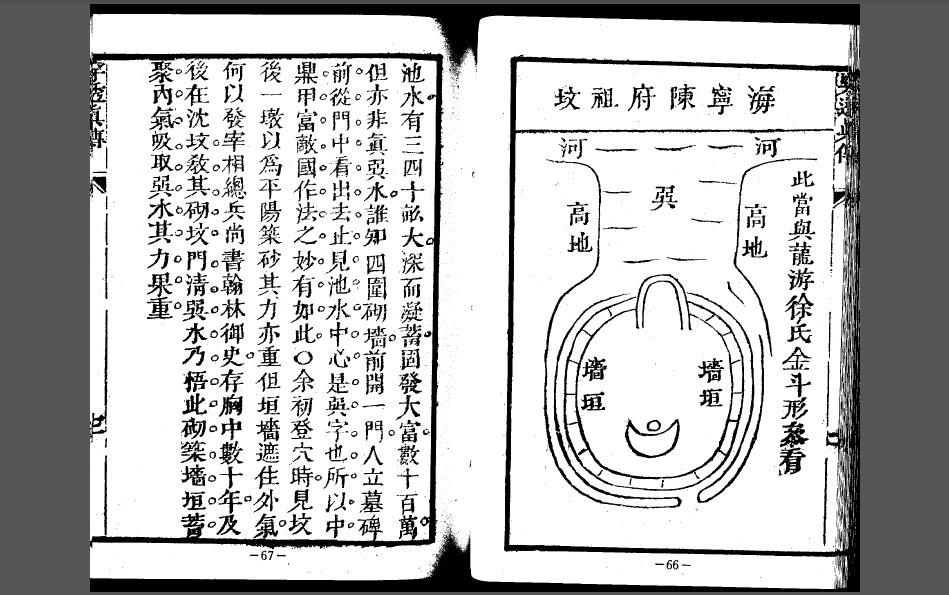 海寧陳府祖坟
此當與龍游徐氏金斗形叅看
河
河
巽
高地
高地
墻垣
墻垣
—66—
池水有三四十畝大深而凝蓄固發大富數十百萬
但亦非眞巽水誰知四圍砌墻前開一門人立墓碑
前從門中看出去止見池水中心是巽字也所以中
鼎甲富敵國作法之妙有如此〇余初登穴時見坟
後一墩以爲平陽築砂其力亦重但垣墻遮住外氣
何以發宰相總兵尚書翰林御史存胸中數十年及
後在沈坟敎其砌坟門清巽水乃悟此砌築墻垣蓄
聚內氣吸取巽水其力果重
—67—